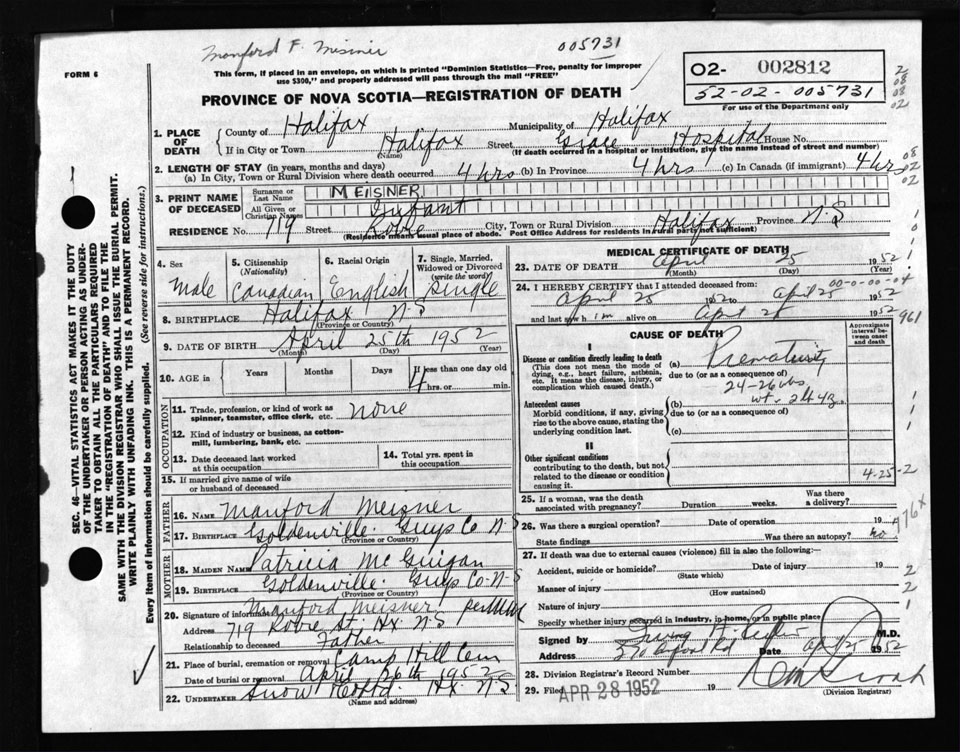 Manford F. Meisner
005731
FORM 6
This form, if placed in an envelope, on which is printed "Dominion Statistics—Free, penalty for improper
use $300," and properly addressed will pass through the mail "FREE"
O2- 002812
52-02-005731
For use of the Department only
PROVINCE OF NOVA SCOTIA—REGISTRATION OF DEATH
1. PLACE OF DEATH
County of Halifax Municipality of Halifax
If in City or Town Halifax (Name) Street Grace Hospital House No.
(If death occurred in a hospital or institution, give the name instead of street and number)
2. LENGTH OF STAY (in years, months and days)
(a) In City, Town or Rural Division where death occurred 4 hrs (b) In Province 4 hrs (c) In Canada (if immigrant) 4 hrs
3. PRINT NAME OF DECEASED
Surname or Last Name MEISNER
All Given or Christian Names Infant
RESIDENCE No. 719 Street City, Town or Rural Division Halifax Province N.S
(Residence means usual place of abode. Post Office Address for residents in rural parts not sufficient)
4. Sex Male
5. Citizenship (Nationality) Canadian
6. Racial Origin English
7. Single, Married, Widowed or Divorced (write the word) Single
8. BIRTHPLACE Halifax N-S
(Province or Country)
9. DATE OF BIRTH April 25th 1952
(Month) (Day) (Year)
10. AGE in Years Months Days If less than one day old
4 hrs. or min.
OCCUPATION
11. Trade, profession, or kind of work as None
spinner, teamster, office clerk, etc.
12. Kind of industry or business, as cotton-
mill, lumbering, bank, etc.
13. Date deceased last worked
at this occupation
14. Total yrs. spent in
this occupation
15. If married give name of wife
or husband of deceased
FATHER
16. NAME Manford Meisner
17. BIRTHPLACE Goldenville Guys Co N-S
(Province or Country)
MOTHER
18. MAIDEN NAME Patricia McGuigan
19. BIRTHPLACE Goldenville Guys Co-N-S
(Province or Country)
20. Signature of informant Manford Meisner
Address 719 St. Hx. N-S
Relationship to deceased Father
21. Place of burial, cremation or removal Camp Hill Cem
Date of burial or removal April 26th 1952
22. UNDERTAKER Snow Hx. N-S
(Name and address)
MEDICAL CERTIFICATE OF DEATH
23. DATE OF DEATH April 25 1952
(Month) (Day) (Year)
00-0-00-04
24. I HEREBY CERTIFY that I attended deceased from:
April 25 1952 to April 25 1952
and last saw him alive on April 25 1952
961
CAUSE OF DEATH
Approximate interval between onset and death
I
Disease or condition directly leading to death
(This does not mean the mode of
dying, e.g., heart failure, asthenia,
etc. It means the disease, injury, or
complication which caused death.)
(a) Prematurity
due to (or as a consequence of)
24-26 wks
Antecedent causes
Morbid conditions, if any, giving
rise to the above cause, stating the
underlying condition last.
(b) wt - 2 lb 4 oz.
due to (or as a consequence of)
(c)
II
Other significant conditions
contributing to the death, but not
related to the disease or condition
causing it.
4-25-2
25. If a woman, was the death
associated with pregnancy? Duration weeks. Was there
a delivery?
26. Was there a surgical operation? Date of operation 19
State findings Was there an autopsy? no
27. If death was due to external causes (violence) fill in also the following:—
Accident, suicide or homicide? Date of injury 19
(State which)
Manner of injury
(How sustained)
Nature of injury
Specify whether injury occurred in industry, in home, or in public place
Signed by M.D.
Address Date Apr 25 1952
28. Division Registrar's Record Number
29. Filed APR 28 1952 19
(Division Registrar)
SEC. 46—VITAL STATISTICS ACT MAKES IT THE DUTY
OF THE UNDERTAKER OR PERSON ACTING AS UNDER-
TAKER TO OBTAIN ALL THE PARTICULARS REQUIRED
IN THE "REGISTRATION OF DEATH" AND TO FILE THE
SAME WITH THE DIVISION REGISTRAR WHO SHALL ISSUE THE BURIAL PERMIT.
WRITE PLAINLY WITH UNFADING INK. THIS IS A PERMANENT RECORD.
Every item of information should be carefully supplied. (See reverse side for instructions.)